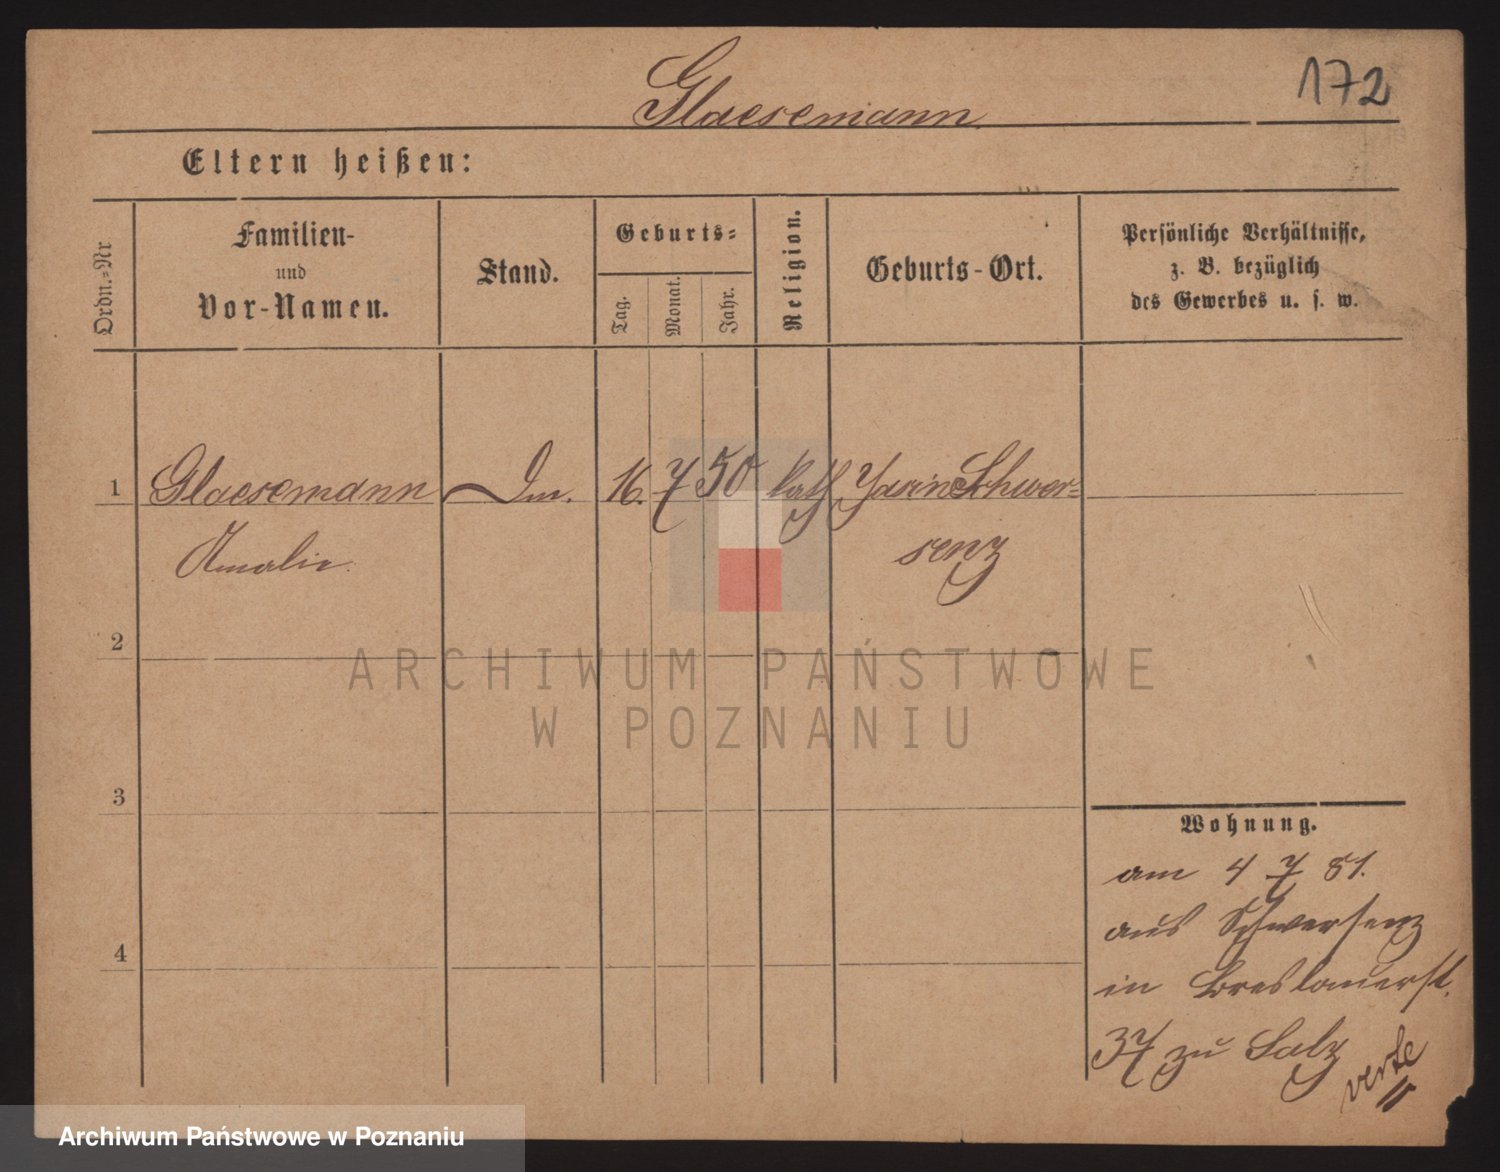 172
Glaesemann
Eltern heißen:
Ordn.=Nr
Familien-
und
Vor-Namen.
Stand.
Geburts=
Tag.
Monat.
Jahr.
Religion.
Geburts-Ort.
Persönliche Verhältnisse,
z. B. bezüglich
des Gewerbes u. s. w.
1 Glaesemann 16. 7 50 kath Schwer=
Amalie senz
2
3
4
ARCHIWUM PAŃSTWOWE
W POZNANIU
Wohnung.
am 4 7 81.
aus Schwersenz
in Breslauerst.
37 zu Salz
verte
Archiwum Państwowe w Poznaniu